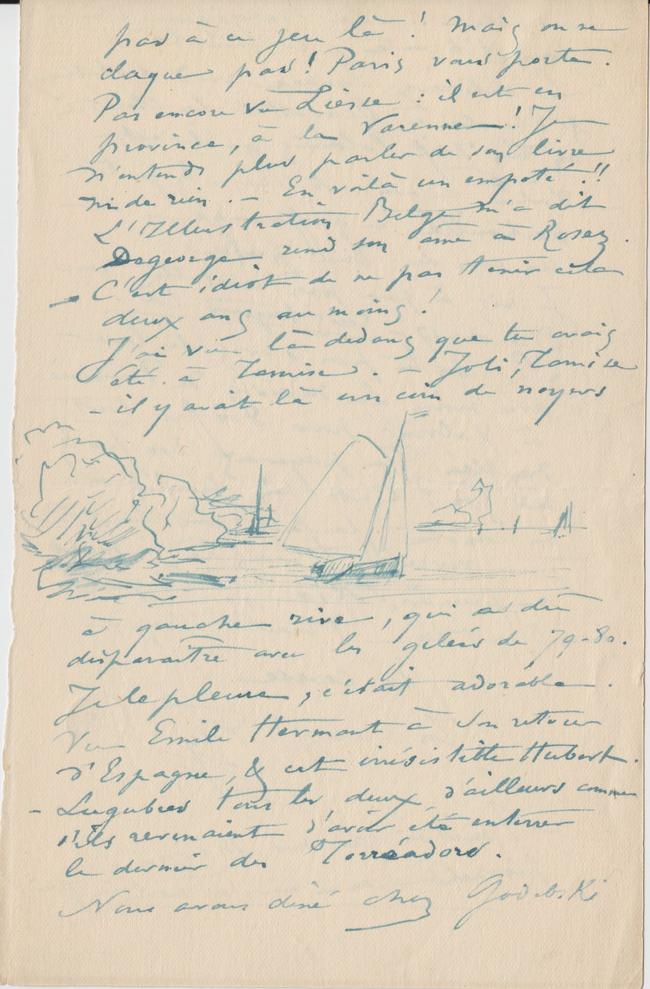 pas à ce jeu là ! Mais on ne
claque pas ! Paris vous porte.
Pas encore vu Liesse : il est en
province, à la Varenne ! Je
n'entends plus parler de son livre
ni de rien. – En voilà un empoté !!
L'Illustration Belge m'a dit
Degeorge rend son âme à Rosez.
– C'est idiot de ne pas tenir cela
deux ans au moins !
J'ai vu là dedans que tu avais
été à Tamise. – Joli, Tamise
– il y avait là un coin de noyers
à gauche rive, qui a dû
disparaître avec les gelées de 79-80.
Je le pleure, c'était adorable.
Vu Emile Hermant à son retour
d'Espagne, & cet irrésistible Hubert.
– Lugubres tous les deux, d'ailleurs comme
s'ils revenaient d'avoir été enterrer
le dernier des Torréadors.
Nous avons dîné chez Godebski